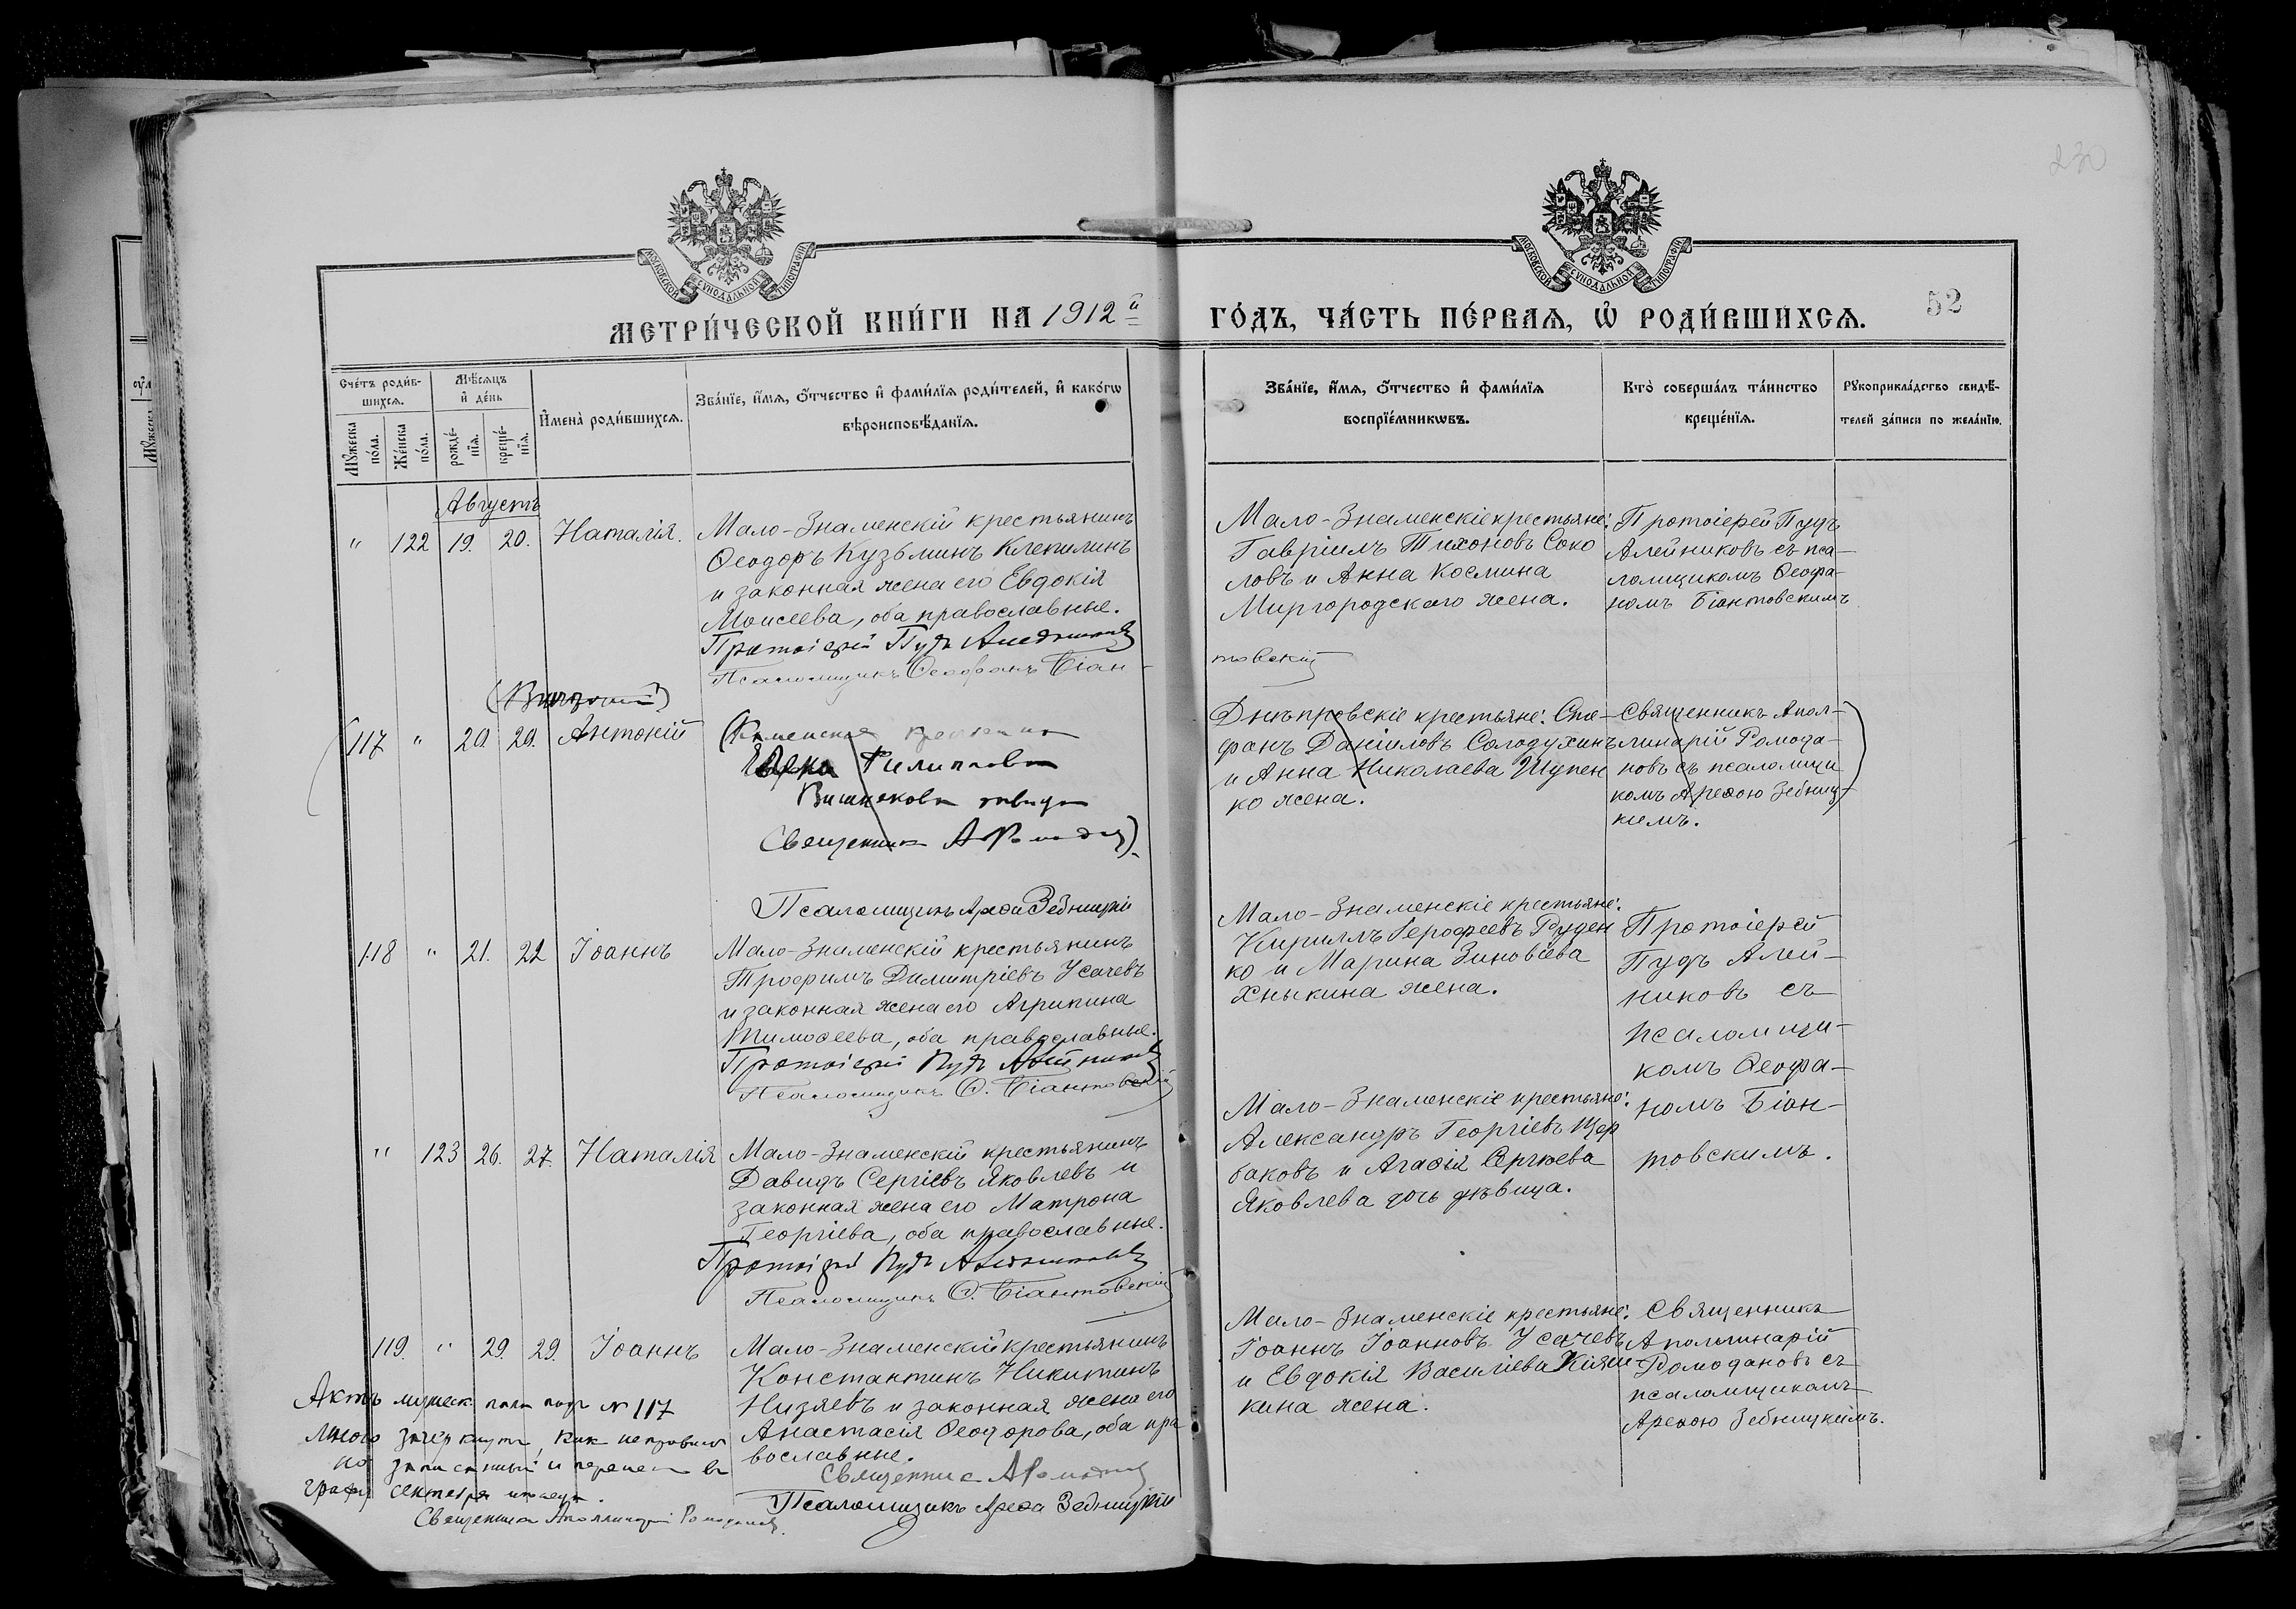 230
МОСКОВСКОЙ СУНОДАЛЬНОЙ ТИПОГРАФІИ
МОСКОВСКОЙ СУНОДАЛЬНОЙ ТИПОГРАФІИ
МЕТРИ́ЧЕСКОЙ КНИ́ГИ НА 1912й
ГО́ДЪ, ЧА́СТЬ ПЕ́РВАѦ, Ѡ РОДИ́ВШИХСѦ.
52
Сче́тъ роди́в-
шихсѧ.
Мꙋ́жеска по́ла.
Же́нска по́ла.
Мѣ́сѧцъ
и де́нь
рожде́-
нїѧ.
креще́-
нїѧ.
Имена̀ роди́вшихсѧ.
Зва́нїе, и́мѧ, о́тчество и фами́лїѧ роди́телей, и како́гѡ
вѣроисповѣ́данїѧ.
Зва́нїе, и́мѧ, о́тчество и фами́лїѧ
воспрїе́мникѡвъ.
Кто̀ соверша́лъ та́инство
креще́нїѧ.
Рꙋкоприкла́дство свидѣ́-
телей за́писи по жела́нїю.
Августъ
" 122 19. 20. Наталія.
Мало-Знаменскій крестьянинъ
Ѳеодоръ Кузьминъ Клепилинъ
и законная жена его Евдокія
Моисеева, оба православные.
Протоіерей Пудъ Алейниковъ
Псаломщикъ Ѳеофанъ Біан-
товскій
Мало-Знаменскіе крестьяне:
Гавріилъ Тихоновъ Соко
ловъ и Анна Космина
Миргородскаго жена.
Протоіерей Пудъ
Алейниковъ съ пса-
ломщикомъ Ѳеофа-
номъ Біантовскимъ
117 " 20. 20. Антоній
(Каменская крестьянка
Филиппова
Вишнякова девица
Священникъ А Ромодановъ).
Псаломщикъ Ареѳа Зебницкій
Днѣпровскіе крестьяне: Сте-
фанъ Даніиловъ Солодухинъ
и Анна Николаева Шупен
ко жена.
Священникъ Апол-
линарій Ромода-
новъ съ псаломщи
комъ Ареѳою Зебниц-
кимъ.
118 " 21. 22 Іоаннъ
Мало-Знаменскій крестьянинъ
Трофимъ Димитріевъ Усачевъ
и законная жена его Агрипина
Тимоѳеева, оба православные.
Протоіерей Пудъ Алейниковъ
Псаломщикъ Ѳ. Біантовскій
Мало-Знаменскіе крестьяне:
Кириллъ Герофеевъ Руден
ко и Марина Зиновіева
Хныкина жена.
Протоіерей
Пудъ Алей-
никовъ съ
псаломщи-
комъ Ѳеофа-
номъ Біан-
товскимъ.
" 123 26. 27. Наталія
Мало-Знаменскій крестьянинъ
Давидъ Сергіевъ Яковлевъ и
законная жена его Матрона
Георгіева, оба православные.
Протоіерей Пудъ Алейниковъ
Псаломщикъ Ѳ. Біантовскій
Мало-Знаменскіе крестьяне:
Александръ Георгіевъ Щер
баковъ и Агаѳія Сергіева
Яковлева дочь дѣвица.
119. " 29. 29. Іоаннъ
Мало-Знаменскій крестьянинъ
Константинъ Никитинъ
Низяевъ и законная жена его
Анастасія Ѳеодорова, оба пра
вославные.
Священникъ А Ромодановъ
Псаломщикъ Ареѳа Зебницкій
Мало-Знаменскіе крестьяне:
Іоаннъ Іоанновъ Усачевъ
и Евдокія Василіева Кіяш
кина жена.
Священникъ
Аполлинарій
Ромодановъ съ
псаломщикомъ
Ареѳою Зебницкимъ.
Актъ мужеск. пола подъ № 117
мною зачеркнутъ, какъ неправиль
но записанный и перенесенъ въ
графу
Священникъ Аполлинарій Ромодановъ.